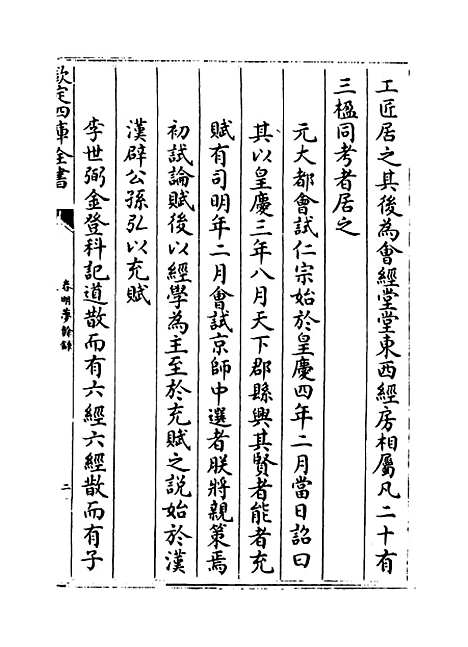 工匠居之其後為會經堂堂東西經房相屬凡二十有
三楹同考者居之
元大都會試仁宗始於皇慶四年二月當日詔曰
其以皇慶三年八月天下郡縣興其賢者能者充
賦有司明年二月會試京師中選者朕將親策焉
初試論賦後以經學為主至於充賦之説始於漢
漢辟公孫弘以充賦
李世弼金登科記道散而有六經六經散而有子
欽定四庫全書
春明夢餘録
二